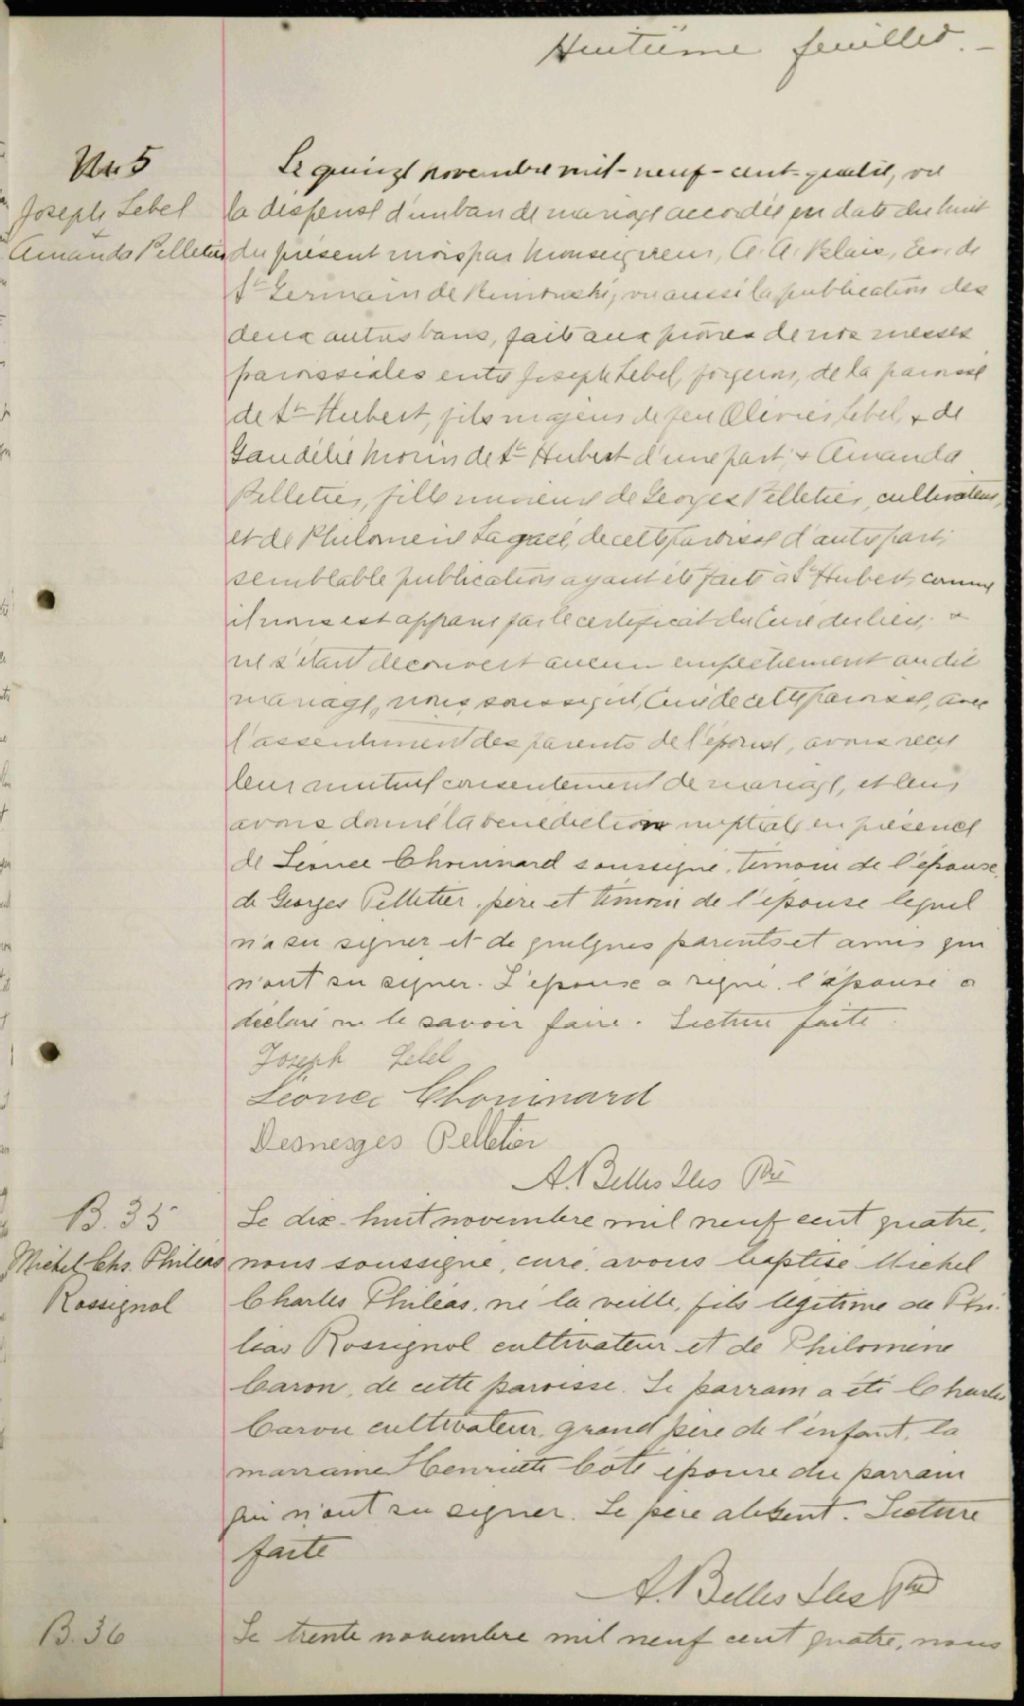 Huitième feuillet.
M. 5
Joseph Lebel
&
Amanda Pelletier
Le quinze novembre mil-neuf-cent-quatre, vu
la dispense d'un ban de mariage accordée en date du huit
du présent mois par Monseigneur, A. A. Blais, Ev. de
St Germain de Rimouski, vu aussi la publication des
deux autres bans, faite aux prônes de nos messes
paroissiales entre Joseph Lebel, forgeron, de la paroisse
de St Hubert, fils majeur de feu Olivier Lebel, & de
Morin de St Hubert d'une part; & Amanda
Pelletier, fille mineure de Georges Pelletier, cultivateur,
et de Philomène Lagacé, de cette paroisse d'autre part;
semblable publication ayant été faite à St Hubert, comme
il nous est apparu par le certificat du Curé du lieu; &
ne s'étant découvert aucun empêchement au dit
mariage, nous, soussigné, Curé de cette paroisse, avec
l'assentiment des parents de l'épouse, avons reçu
leur mutuel consentement de mariage, et leur
avons donné la bénédiction nuptiale en présence
de Léonce Chouinard soussigné, témoin de l'épouse,
de Georges Pelletier, père et témoin de l'épouse lequel
n'a su signer et de quelques parents et amis qui
n'ont su signer. L'epoux a signé, l'épouse a
déclaré ne le savoir faire. Lecture faite.
Joseph Lebel
Léonce Chouinard
Desneiges Pelletier
A. Belles Iles Ptre
B. 35
Michel Chs. Philéas
Rossignol
Le dix-huit novembre mil neuf cent quatre,
nous soussigné, curé, avons baptisé Michel
Charles Philéas, né la veille, fils légitime de Phi-
léas Rossignol cultivateur et de Philomène
Caron, de cette paroisse. Le parrain a été Charles
Caron cultivateur, grand père de l'enfant, la
marraine Henriette Côté épouse du parrain
qui n'ont su signer. Le père absent. Lecture
faite
A. Belles Iles Ptre
B. 36
Le trente novembre mil neuf cent quatre, nous